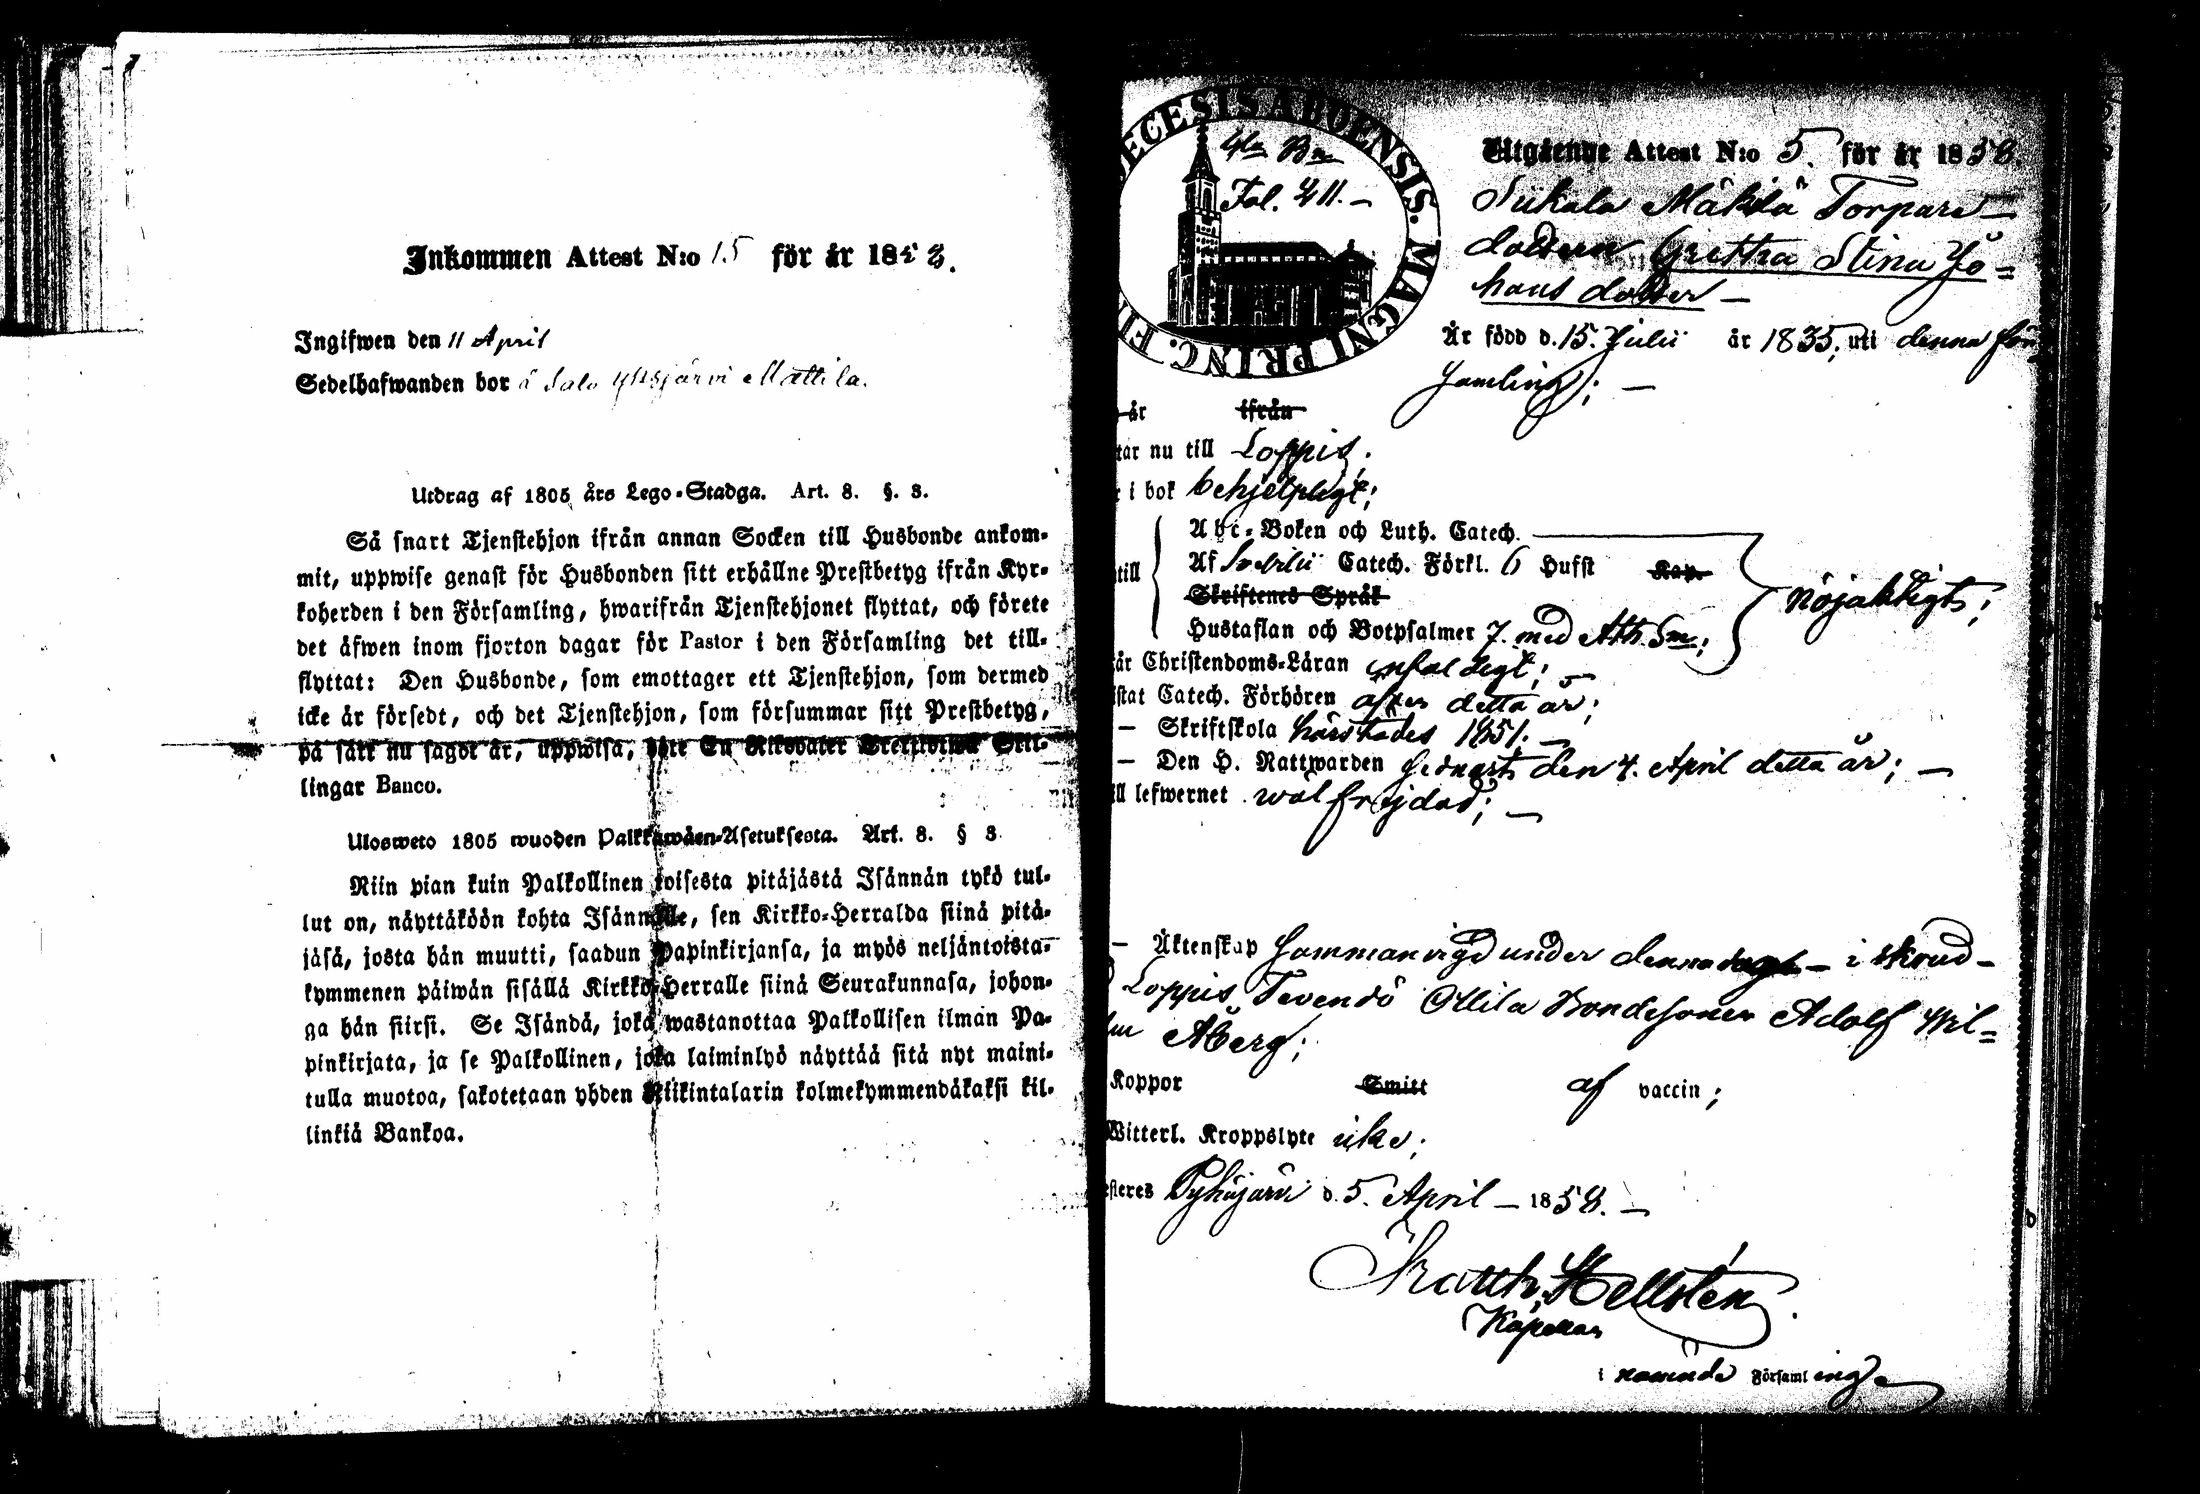 Inkommen Attest N:o 15 för år 1858.
Ingifwen den 11 April
Sedelhafwanden bor å Salo Yksjärvi Mattila.
Utdrag af 1805 års Lego-Stadga. Art. 8. §. 3.
Så snart Tjenstehjon ifrån annan Socken till Husbonde ankom-
mit, uppwise genast för Husbonden sitt erhållne Prestbetyg ifrån Kyr-
koherden i den Församling, hwarifrån Tjenstehjonet flyttat, och förete
det äfwen inom fjorton dagar för Pastor i den Församling det till-
flyttat: Den Husbonde, som emottager ett Tjenstehjon, som dermed
icke är försedt, och det Tjenstehjon, som försummar sitt Prestbetyg,
på sätt nu sagdt är, uppwisa, böte En Riksdaler Trettiotwå Skil-
lingar Banco.
Ulosweto 1805 wuoden Palkkawäen-Asetuksesta. Art. 8. § 3.
Niin pian kuin Palkollinen toisesta pitäjästä Isännän tykö tul-
lut on, näyttäköön kohta Isännälle, sen Kirkko-Herralda siinä pitä-
jäsä, josta hän muutti, saadun Papinkirjansa, ja myös neljäntoista-
kymmenen päiwän sisällä Kirkko-Herralle siinä Seurakunnasa, johon-
ga hän siirsi. Se Isändä, joka wastanottaa Palkollisen ilman Pa-
pinkirjata, ja se Palkollinen, joka laiminlyö näyttää sitä nyt maini-
tulla muotoa, sakotetaan yhden Riikintalarin kolmekymmendäkaksi kil-
linkiä Bankoa.
ECESIS ABOENSIS. MAGNI PRINC. FI
Fol. 411.
Utgående Attest N:o 5. för år 1858.
Siikala Mäkilä Torpare-
dottern Gretha Stina Jo=
hans dotter
Är född d. 15. Julii år 1835, uti denna för
samling;
är ifrån
tar nu till Loppis.
i bok behjelpligt;
till
Abc-Boken och Luth. Catech.
Af Svebilii Catech. Förkl. 6 Hufst Kap.
Skriftenes Språk
Hustaflan och Botpsalmer 7. med Ath. Sm;
nöjaktigt;
år Christendoms-Läran enfaldigt;
stat Catech. Förhören äfven detta år;
— Skriftskola härstädes 1851.
— Den H. Nattwarden sednast den 4. April detta år;
ll lefwernet wälfrejdad;
— Äktenskap sammanvigd under denna dag i skrud
Loppis Tevendö Ollila Bondesonen Adolf Wil=
lm Åberg;
Koppor Smitt af vaccin;
Witterl. Kroppslyte icke;
esteres Pyhäjärvi d. 5. April 1858.
Matth. Hellstén
Kapellan
i nämnde Församling